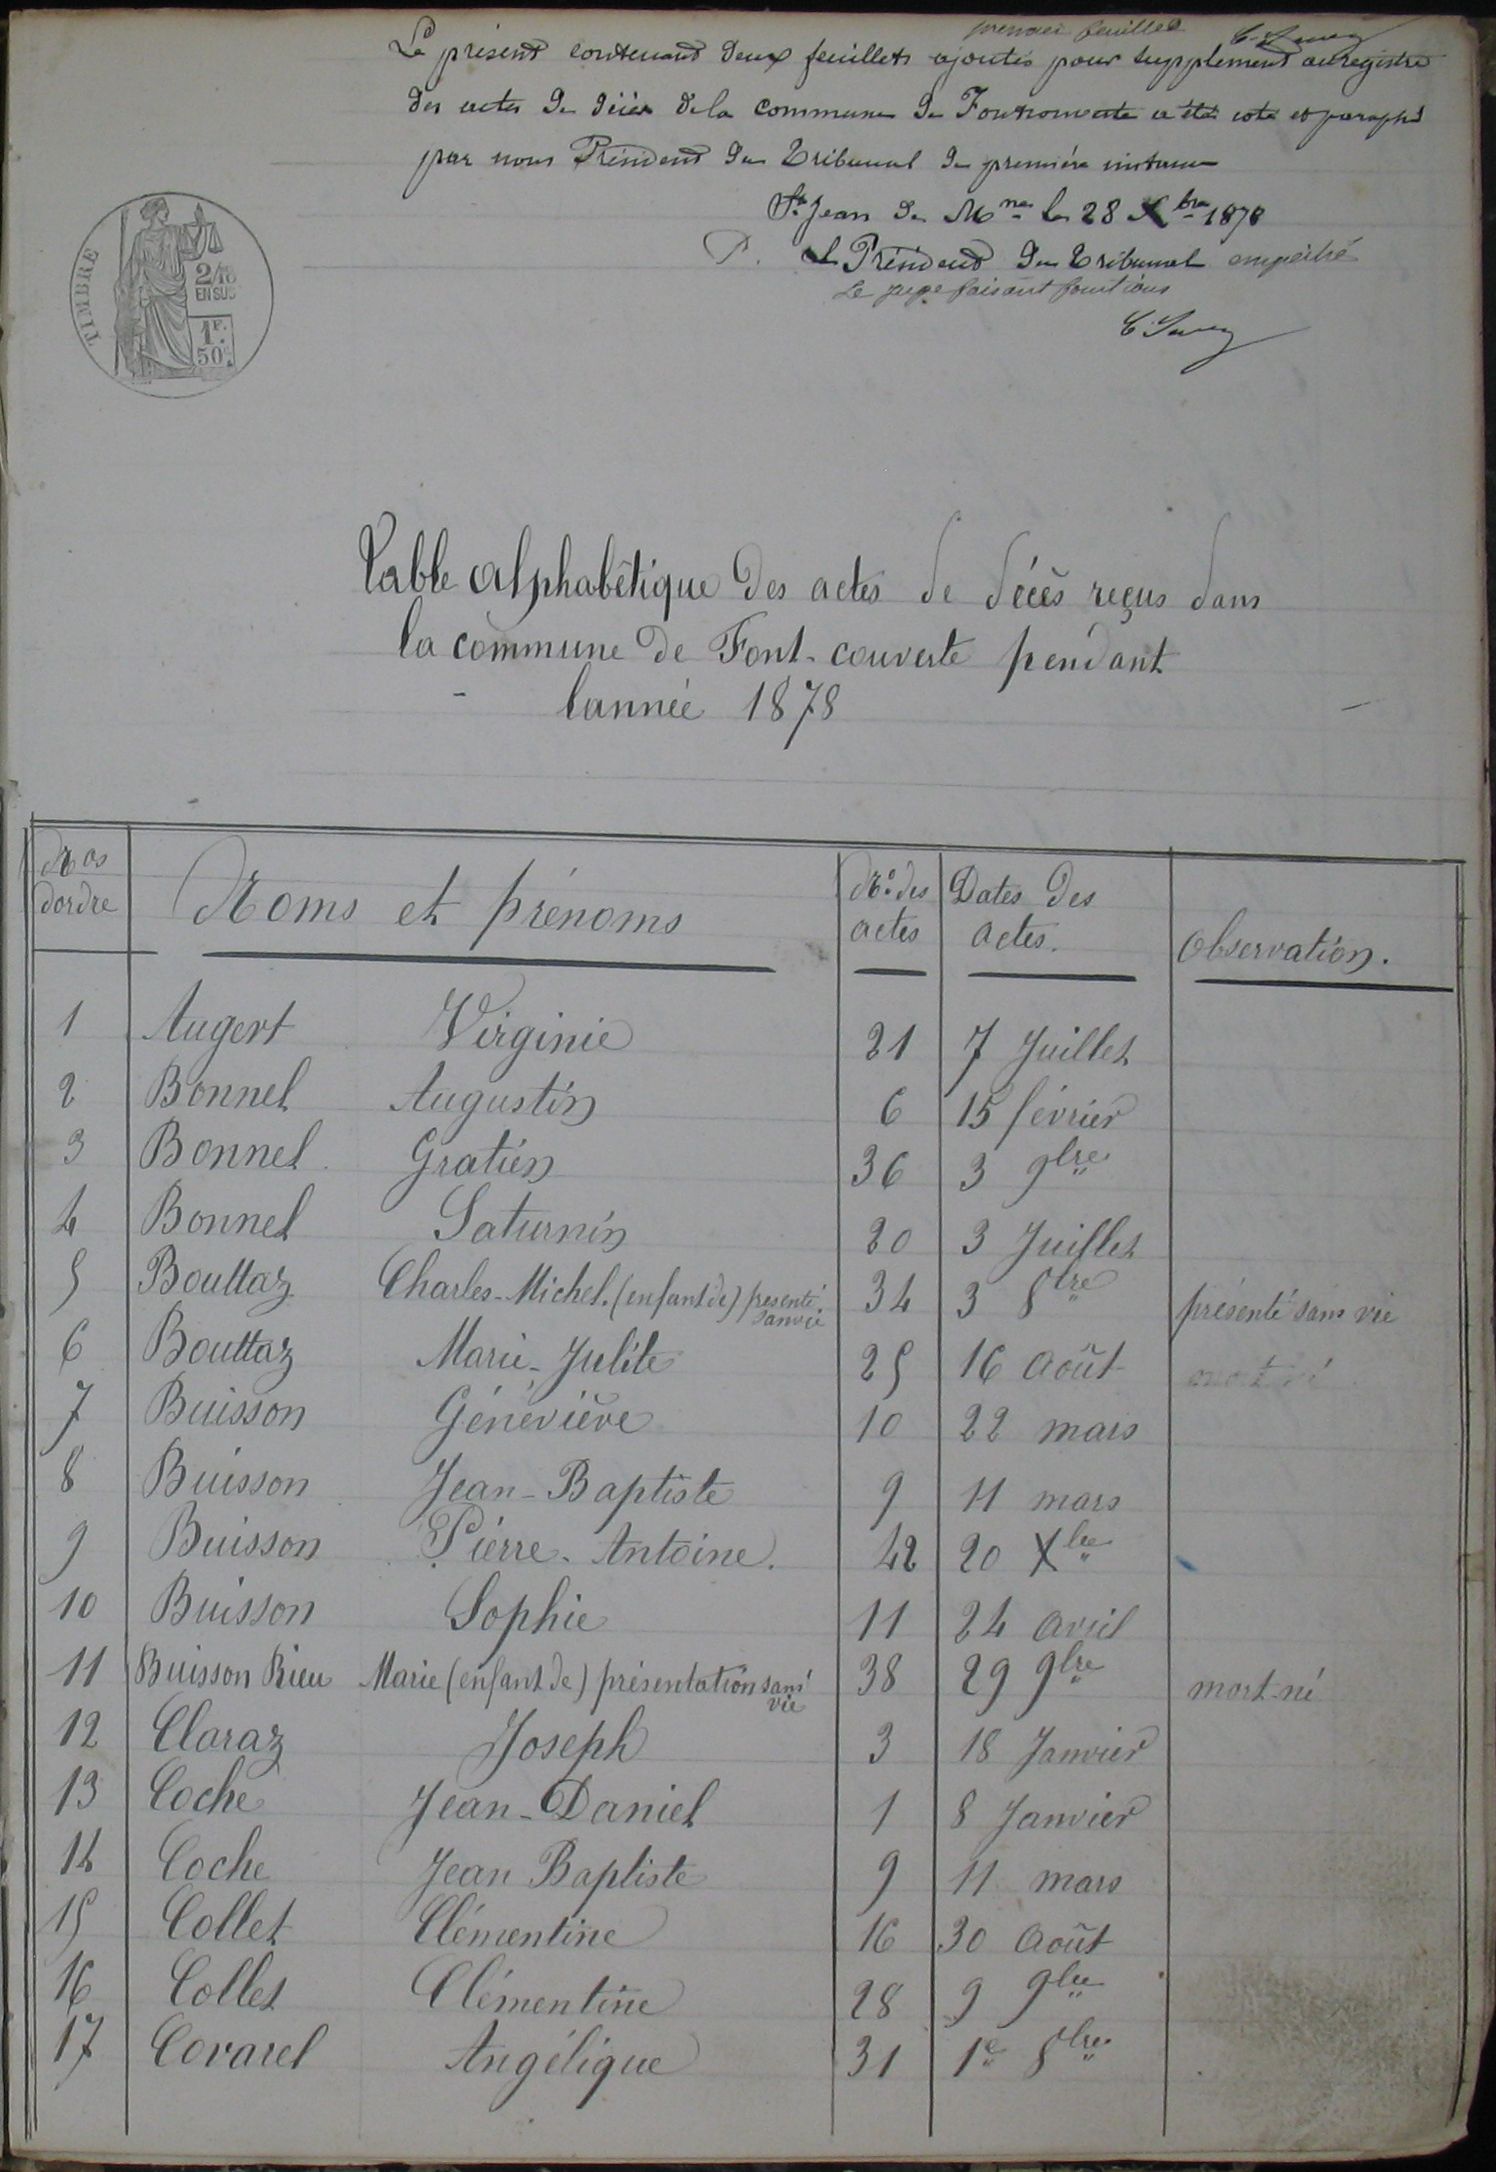 premier feuillet
Le présent contenant deux feuillets ajoutés pour supplément au registre
des actes de décès de la commune de Fontcouverte a été coté et paraphé
par nous Président du Tribunal de première instance
St Jean de Mne le 28 Xbre 1878
P. le Président du Tribunal empêché
Le juge faisant fonctions
TIMBRE
2/10
EN SUS
1F.
50c.
Table alphabêtique des actes de décès reçus dans
la commune de Font-couverte pendant
l'année 1878
Nos d'ordre Noms et prénoms No des actes Dates des actes. Observation.
1 Augert Virginie 21 7 Juillet
2 Bonnel Augustin 6 15 février
3 Bonnel Gratien 36 3 9bre
4 Bonnel Saturnin 20 3 Juillet
5 Bouttaz Charles-Michel. (enfant de) présenté sans vie 34 3 8bre présenté sans vie
6 Bouttaz Marie-Julite 25 16 Août mort né
7 Buisson Généviève 10 22 mars
8 Buisson Jean-Baptiste 9 11 mars
9 Buisson Pierre-Antoine. 42 20 Xbre
10 Buisson Sophie 11 24 avril
11 Buisson Rieu Marie (enfant de) présentation sans vie 38 29 9bre mort-né
12 Claraz Joseph 3 18 Janvier
13 Coche Jean-Daniel 1 8 Janvier
14 Coche Jean Baptiste 9 11 mars
15 Collet Clémentine 16 30 Août
16 Collet Clémentine 28 9 9bre
17 Covarel Angélique 31 1e 8bre